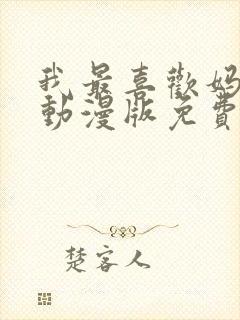 我最喜歡媽
動漫版免費
楚客人